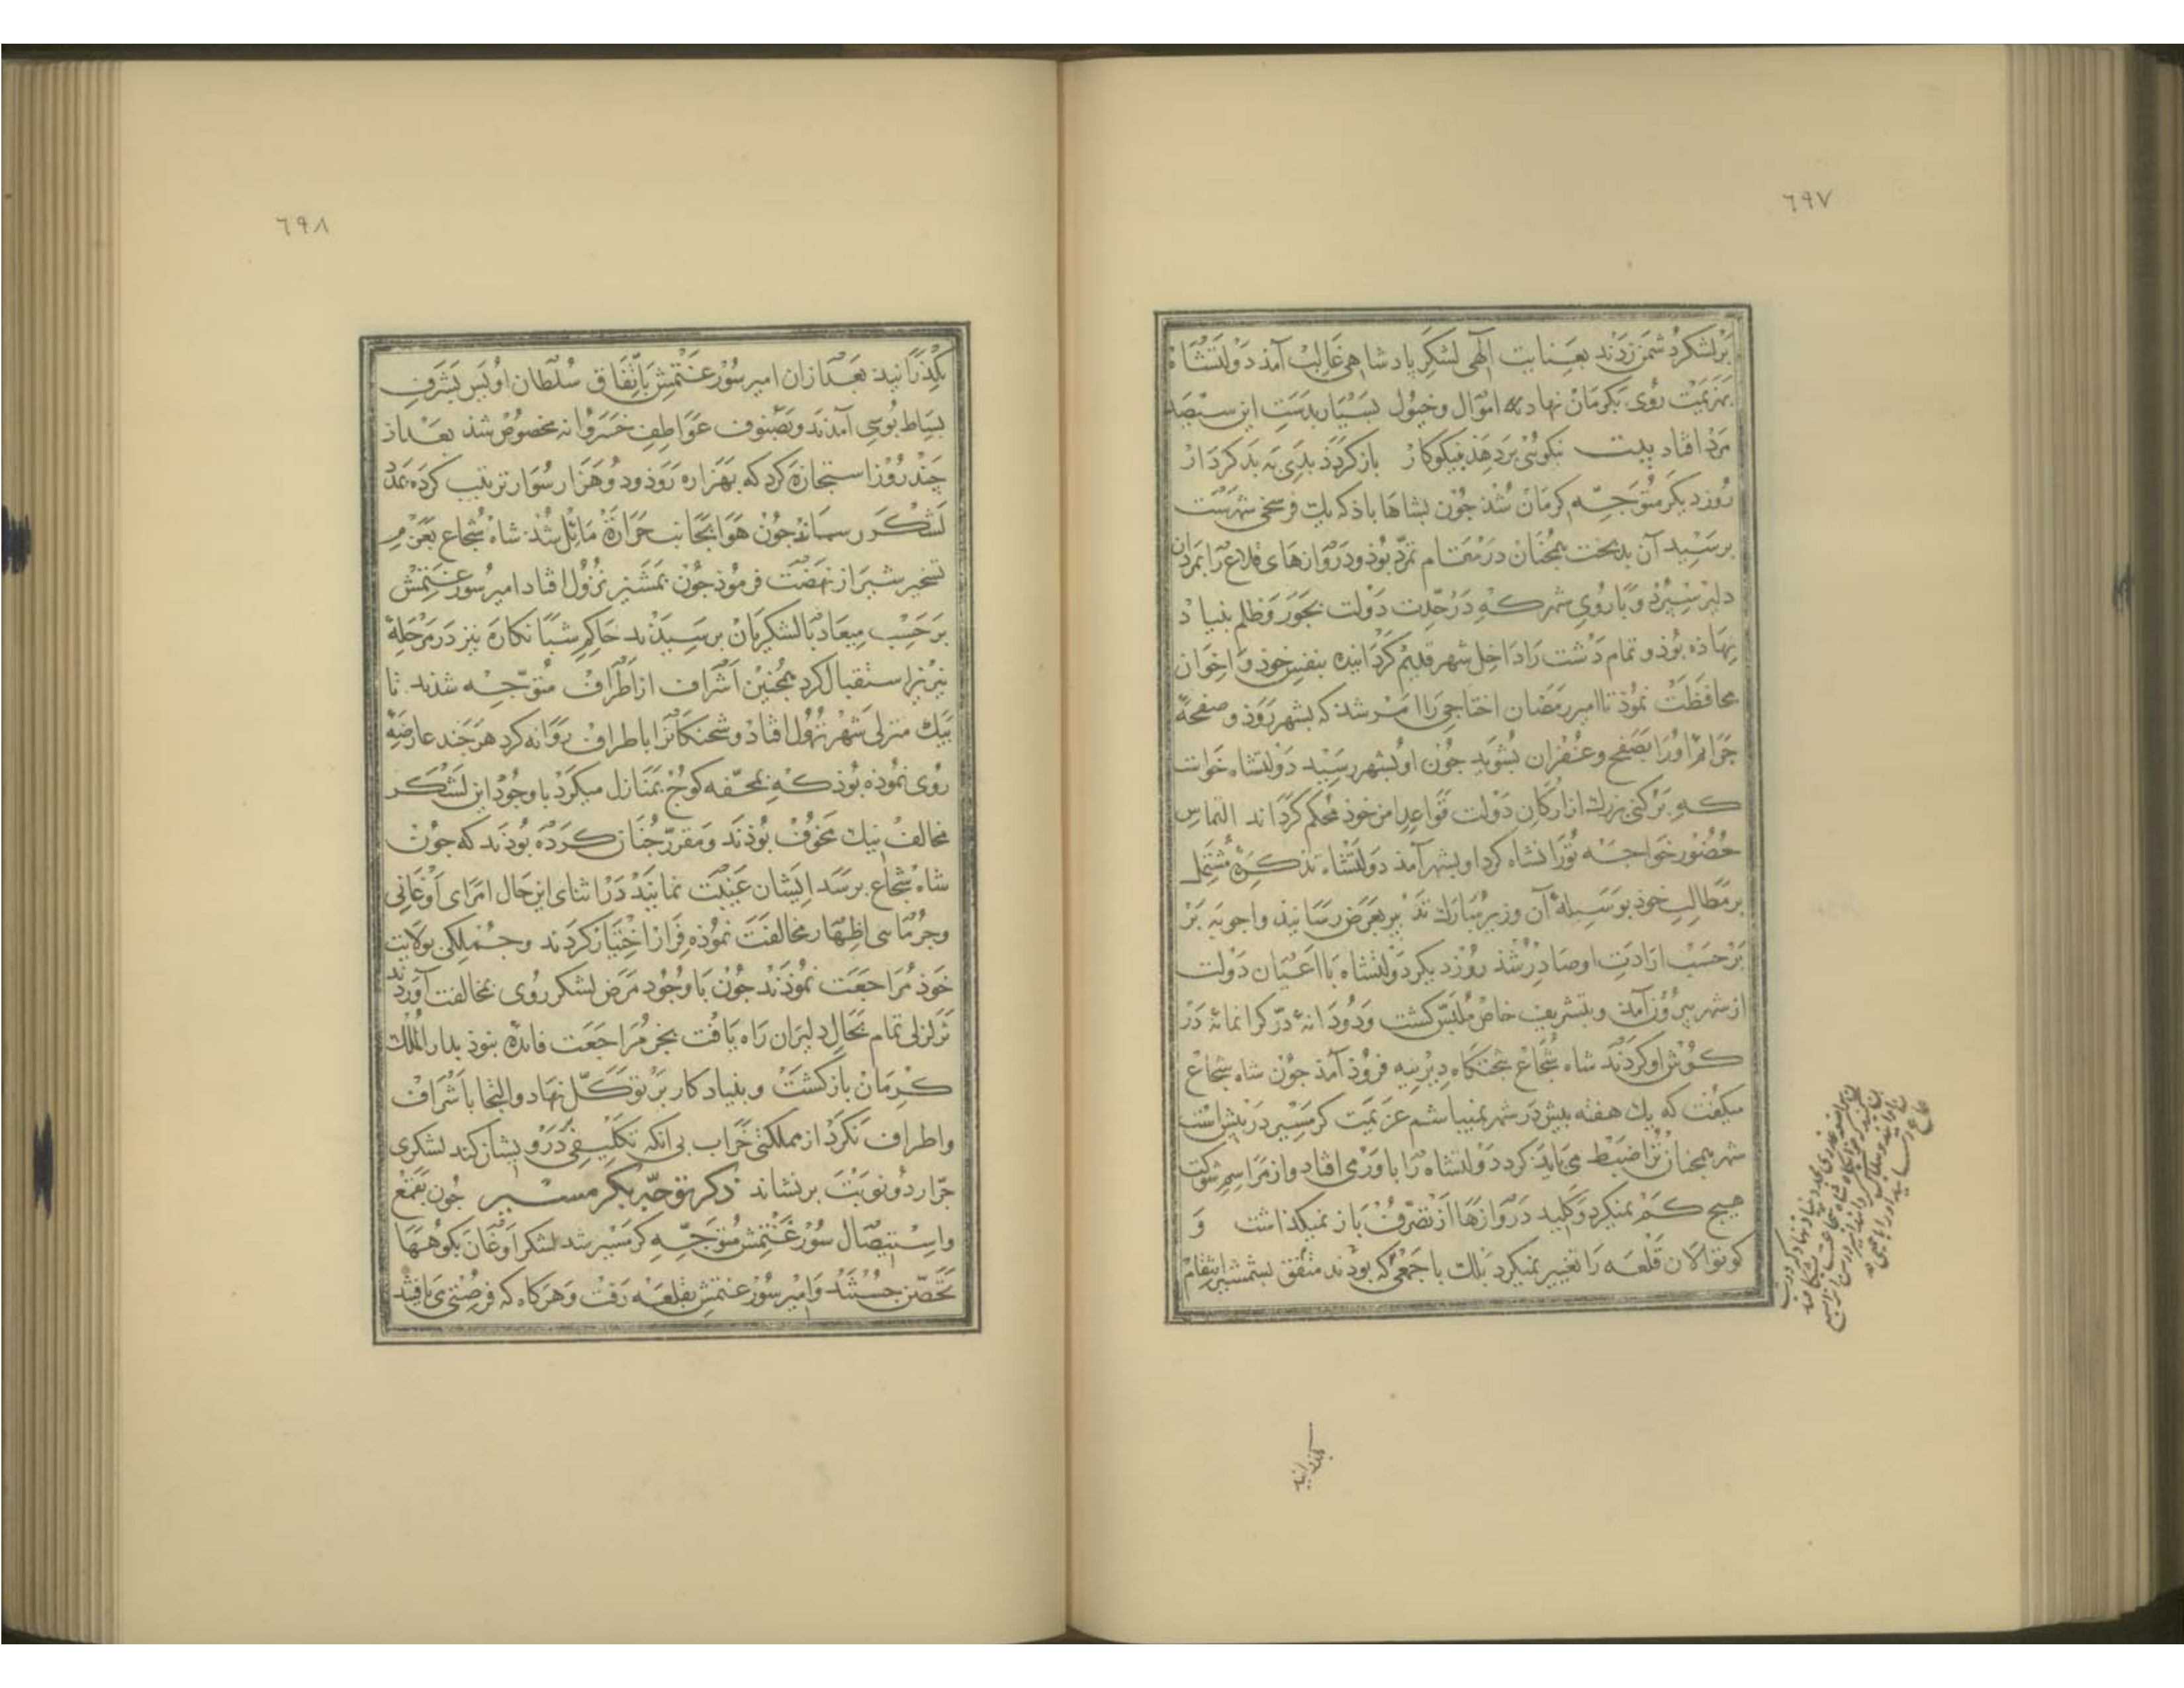 ٦٩٧
بر لشکر دشمن زدند بعنایت الهی لشکر پادشاهی غالب آمذ دولتشاه
بهزیمت روی بکرمان نهاد اموال و خیول بسیار بدست این سیصد
مرد افتاد بیت نیکوئی بر دهذ بنیکوکار باز کردذ بدی به بد کردار
روز دیکر متوجه کرمان شذ جون بشاهاباذ که یک فرسخی شهرست
برسید آن بدبخت همجنان در مقام تمرد بوذ و دروازهای قلاع را بمردان
دلیر سپرد و باروی شهر که در دولت بجور و ظلم بنیاد
نهاذه بوذ و تمام دشت را داخل شهر قدیم کردانیده بنفس خوذ و اخوان
محافظت نموذ تا امیر رمضان اختاجی را امر شد که بشهر روذ و صفحهٔ
جرائم او را بصفح و غفران بشوید جون او بشهر رسید دولتشاه خواست
که برکنی بزرک از ارکان دولت قواعد امن خوذ محکم کرداند التماس
حضور خواجه تورانشاه کرد او بشهر آمذ دولتشاه تذکرهٔ مشتمل
بر مطالب خوذ بوسیلهٔ آن وزیر مبارک تدبیر بعرض رسانید و اجوبه بر
بر حسب ارادت او صادر شذ روز دیکر دولتشاه با اعیان دولت
از شهر بیرون آمذ و بتشریف خاص ملبس کشت و دو دانهٔ در کرانمائه در
کوش او کردند شاه شجاع بتختکاه دیرینه فروذ آمذ جون شاه شجاع
میکفت که یک هفته بیش در شهر نمیباشم عزیمت کرمسیر در پیش است
شهر همجنان ترا ضبط می باید کرد دولتشاه را باور می افتاد و از مراسم شوکت
هیچ کم نمیکرد و کلید دروازها از تصرف باز نمیکذاشت و
کوتوالان قلعه را تغییر نمیکرد ملک با جمعی که بوذند متفق بشمشیر انتقام
بکذرانید
٦٩٨
بکذرانید بعد ازان امیر سورغتمش باتفاق سلطان اویس بشرف
بساط بوسی آمدند و بصنوف عواطف خسروانه مخصوص شذ بعد از
جند روز استجازه کرد که بهزاره روذ و دو هزار سوار ترتیب کرده بمدد
لشکر رساند جون هوا بجانب حرارة مائل شذ شاه شجاع بعزم
تسخیر شیراز نهضت فرموذ جون بمشیز نزول افتاد امیر سورغتمش
بر حسب میعاد با لشکریان برسیدند حاکم شبانکاره نیز در مرحلهٔ
نیریز استقبال کرد همجنین اشراف از اطراف متوجه شدند تا
بیک منزلی شهر نزول افتاد و شحنکانرا باطراف روانه کرد هرجند عارضهٔ
روی نموذه بوذ که بمحفه کوج بمنازل میکرد با وجود این لشکر
مخالف نیک مخوف بوذند و مقرر جنان کرده بوذند که جون
شاه شجاع برسد ایشان غیبت نمایند در اثنای این حال امرای اوغانی
و جرمائی اظهار مخالفت نموذه فرار اختیار کردند و جملکی بولایت
خوذ مراجعت نموذند جون با وجود مرض لشکر روی بمخالفت آوردند
تزلزلی تمام بحال دلیران راه یافت بجز مراجعت فائده نبوذ بدار الملک
کرمان باز کشت و بنیاد کار بر توکل نهاد و التجا باشراف
و اطراف نکرد از مملکتی خراب بی آنکه تکلیفی در ویشان کند لشکری
جرار دو نوبت برنشاند ذکر توجه بکرمسیر جون بقمع
و استیصال سورغتمش متوجه کرمسیر شد لشکر اوغان بکوهها
تحصن جستند و امیر سورغتمش بقلعه رفت و هرکاه که فرصتی می یافتند